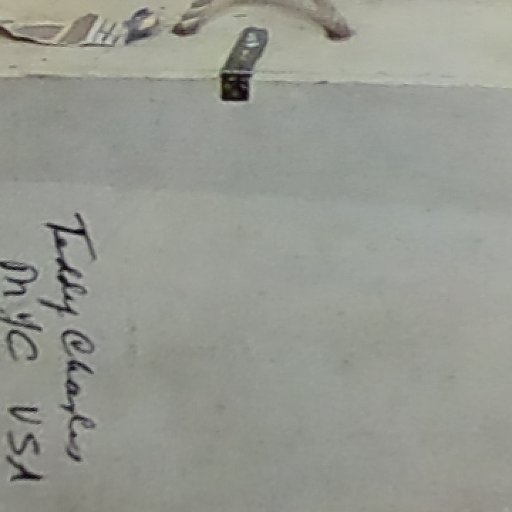 Teddy Charles
NYC USA